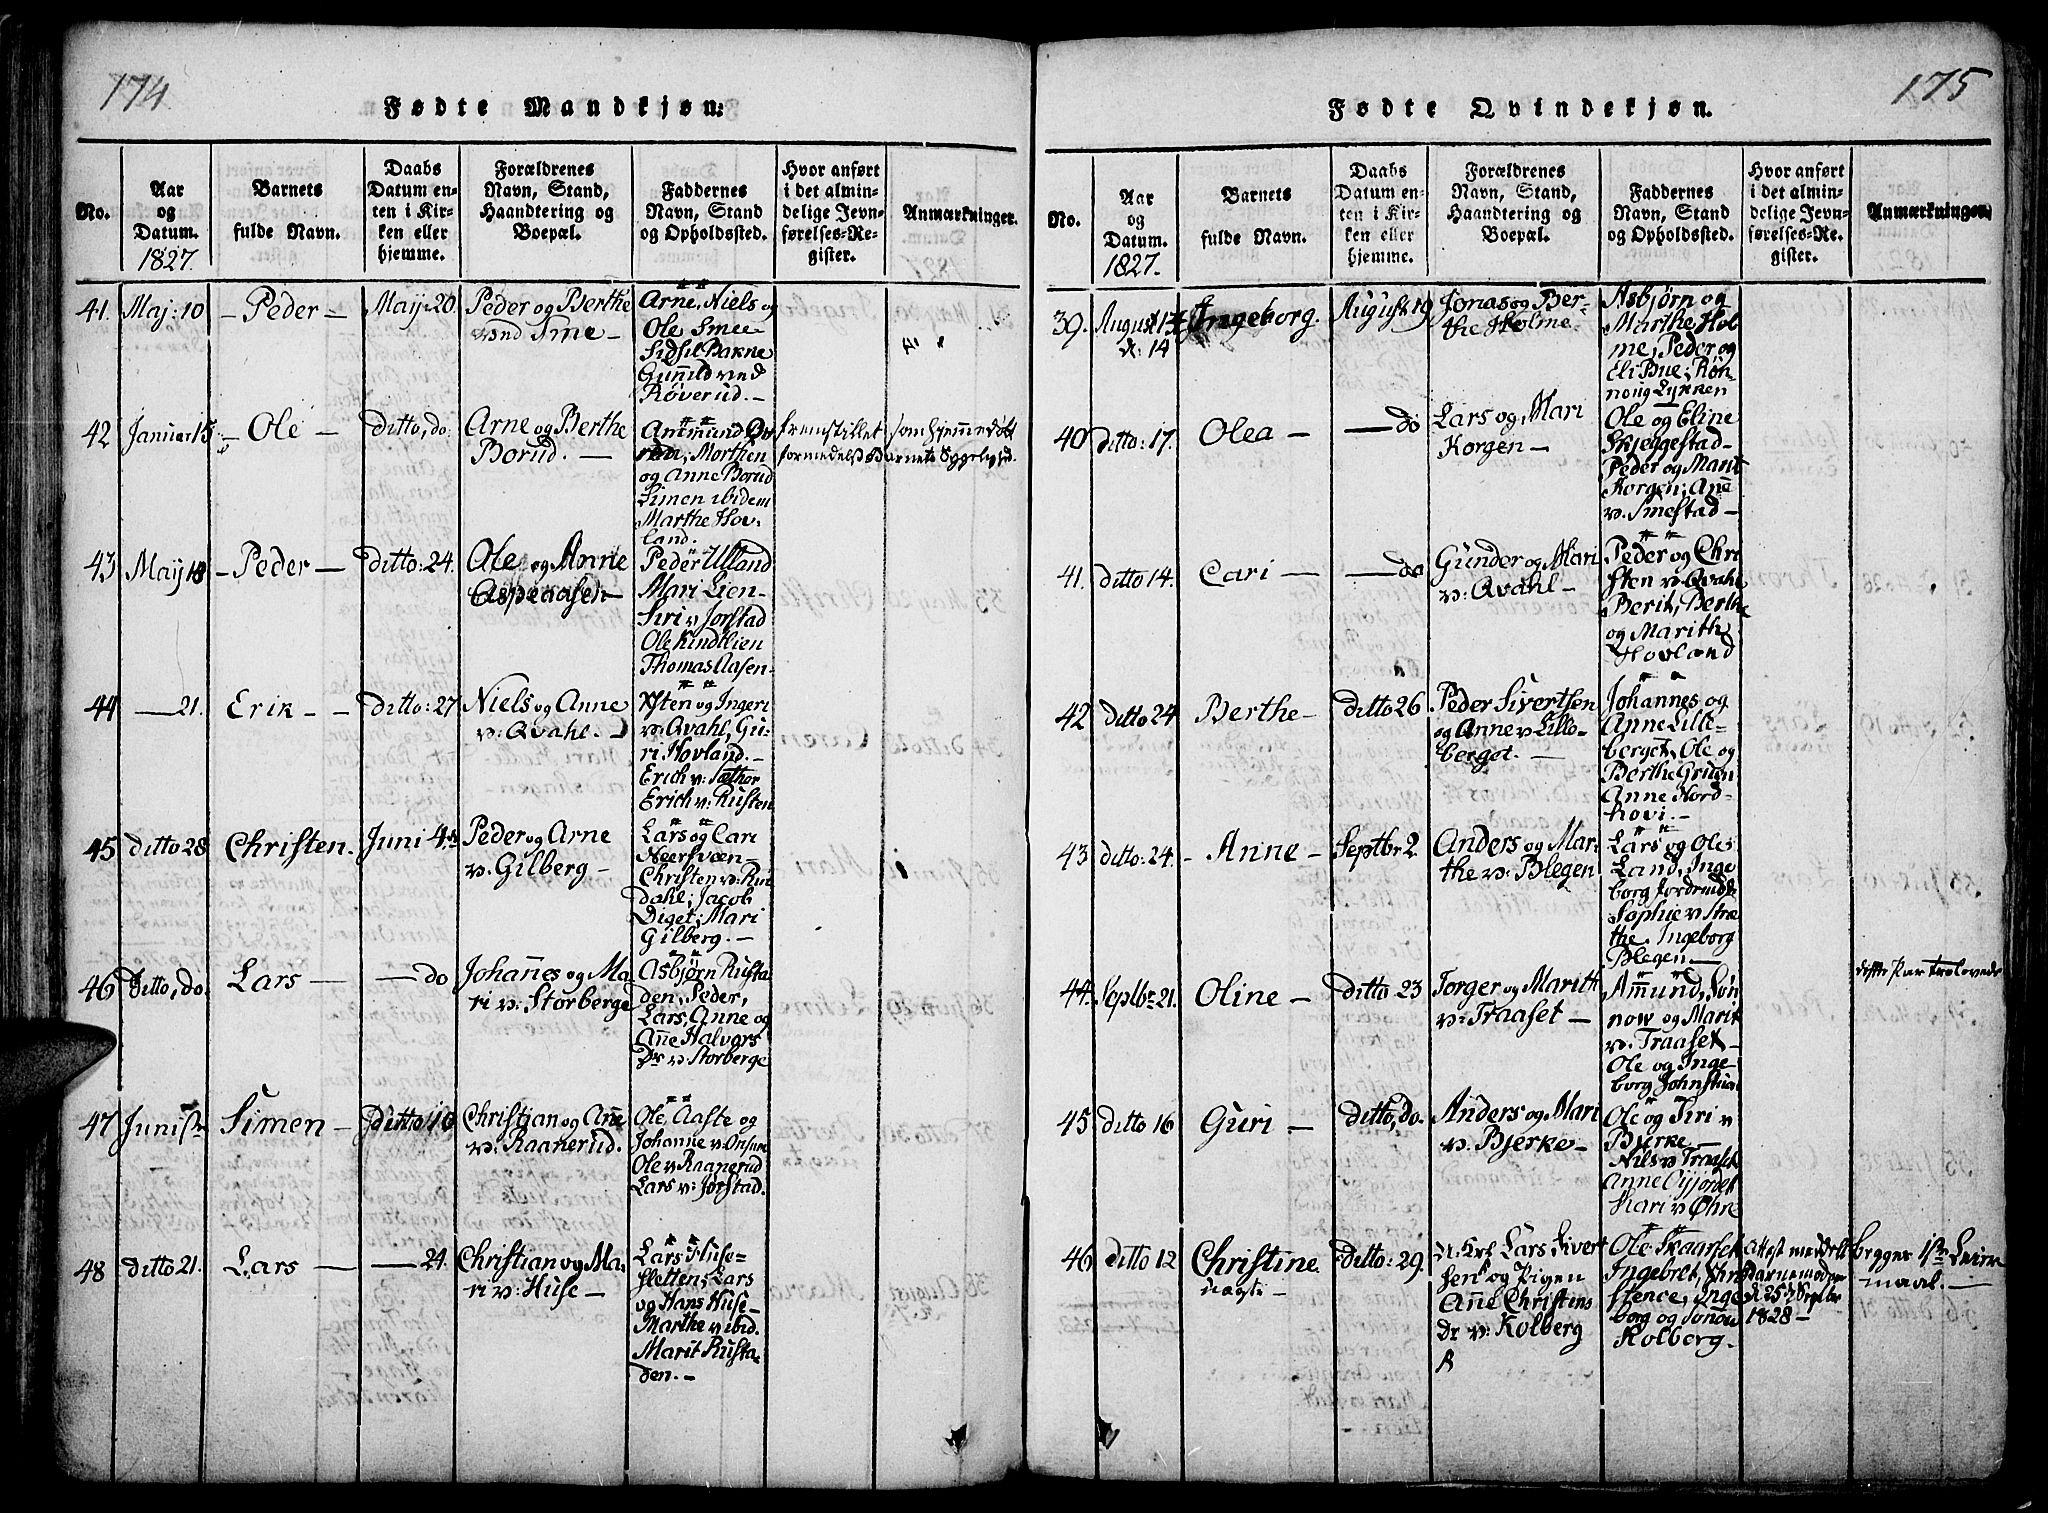 174
Fødte Mandkjøn:
No.
Aar
og
Datum.
1827.
Barnets
fulde Navn.
Daabs
Datum en-
ten i Kir-
ken eller
hjemme.
Forældrenes
Navn, Stand,
Haandtering og
Boepæl.
Faddernes
Navn, Stand
og Opholdssted.
Hvor anført
i det almin-
delige Jevn-
førelses-Re-
gister.
Anmærkninger.
41.
Maj: 10
- Peder -
Maij: 20.
Peder og Berthe
ved Sme -
Arne, Niels og
Ole Smee
Sidsil Bakne
Gunild ved
Røverud. -
42
Januar 15
- Ole
Ditto, do.
Arne og Berthe
Borud. -
Morthen
og Anne Borud
Simen ibidem
Marthe Hov-
land.
fremstillet som hjemmedøbt
formedelst Barnets Sygelighed.
43
Maij 18
- Peder -
Ditto: 24.
Ole og Anne
Aspeaasen -
Peder Ulland
Mari Lien -
Siri v. Jorstad
Ole Kindlien
Thomas Aasen -
44
- 21.
Erik - -
Ditto: 27
Niels og Anne
v: Qvahl. -
Østen og Ingeri
v: Qvahl, Gu-
ri Hovland. -
Erich v: Sæthor
Erich v: Rusten
45
ditto 28
Christen.
Juni 4de
Peder og Arne
v: Gilberg -
Lars og Cari
Neersvæen -
Christen v: Rui
Dahl; Jacob
Diget; Mari
Gilberg. -
46
Ditto, do.
Lars -
- do
Johannes og Ma
ri v: Storberge
Asbjørn Rusta
den, Peder,
Lars, Anne og
Anne Halvors
Dr v: Storberge
47
Juni
Simen -
Ditto 10
Christian og Anne
v: Raanerud.
Ole, Aaste og
Johanne v: Onsum
Ole v Raanerud
Lars v: Jorstad.
48
ditto 21.
Lars -
- 24.
Christian og Ma
ri v: Huse -
Lars Huse-
sletten; Lars
og Hans Huse -
Marthe v ibid.
Marit Rusta
den. -
175
Fødte Qvindekjøn.
No.
Aar
og
Datum.
1827.
Barnets
fulde Navn.
Daabs
Datum en-
ten i Kir-
ken eller
hjemme.
Forældrenes
Navn, Stand,
Haandtering og
Boepæl.
Faddernes
Navn, Stand
og Opholdssted.
Hvor anført
i det almin-
delige Jevn-
førelses-Re-
gister.
Anmærkninger.
39.
August
d: 14
Ingeborg.
August 19
Jonas og Ber-
the Holme.
Asbjørn og
Marthe Hol
me; Peder og
Eli Bue; Røn-
noug Lykken
40
ditto: 17.
Olea -
- do
Lars og Mari
Korgen -
Ole og Eline
Skjeggestad -
Peder og Marit
Korgen; Ane
v. Smestad -
41.
ditto 14.
Cari -
- do
Gunder og Mari
v: Qvahl -
Peder og Chri
sten v. Qvahl
Berit, Berthe
og Marith
Hovland
42
ditto 24
Berthe -
Ditto 26
Peder Sivertsen
og Anne v Lille-
berget. -
Johannes og
Anne Lille-
berget, Ole og
Berthe Gruen
Anne Nord-
hovi. -
43
ditto: 24.
- Anne -
Septbr 2
Anders og Mar-
the v: Blegen
Lars og Ole
Land, Inge
borg Jordrud
Sophie v Stræ
the. Ingeborg
Blegen -
44.
Septbr 21.
Oline -
Ditto 23
Torger og Marith
v: Traaset -
Amund, Søn
now og Marit
v: Traaset -
Ole og Inge-
borg Johnstu
dette Par trolovede
45
ditto 16
Guri -
Ditto, do.
Anders og Mari
v: Bjerke -
Ole og Siri v
Bjerke -
Nils v: Traaset
Anne
Mari v Øhre
46
ditto 12
Christine
uægte -
Ditto: 29.
U: Krl Lars Sivert
sen og Pigen
Anne Christens
Dr v: Kolberg
Ole Skaarset
Ingebret, Chri
stence, Inge
borg og Sønow
Kolberg. -
Attest meddelt
Barnemoderen
d 25de Septbr
1828 -
begges 1ste Leier
maal. -